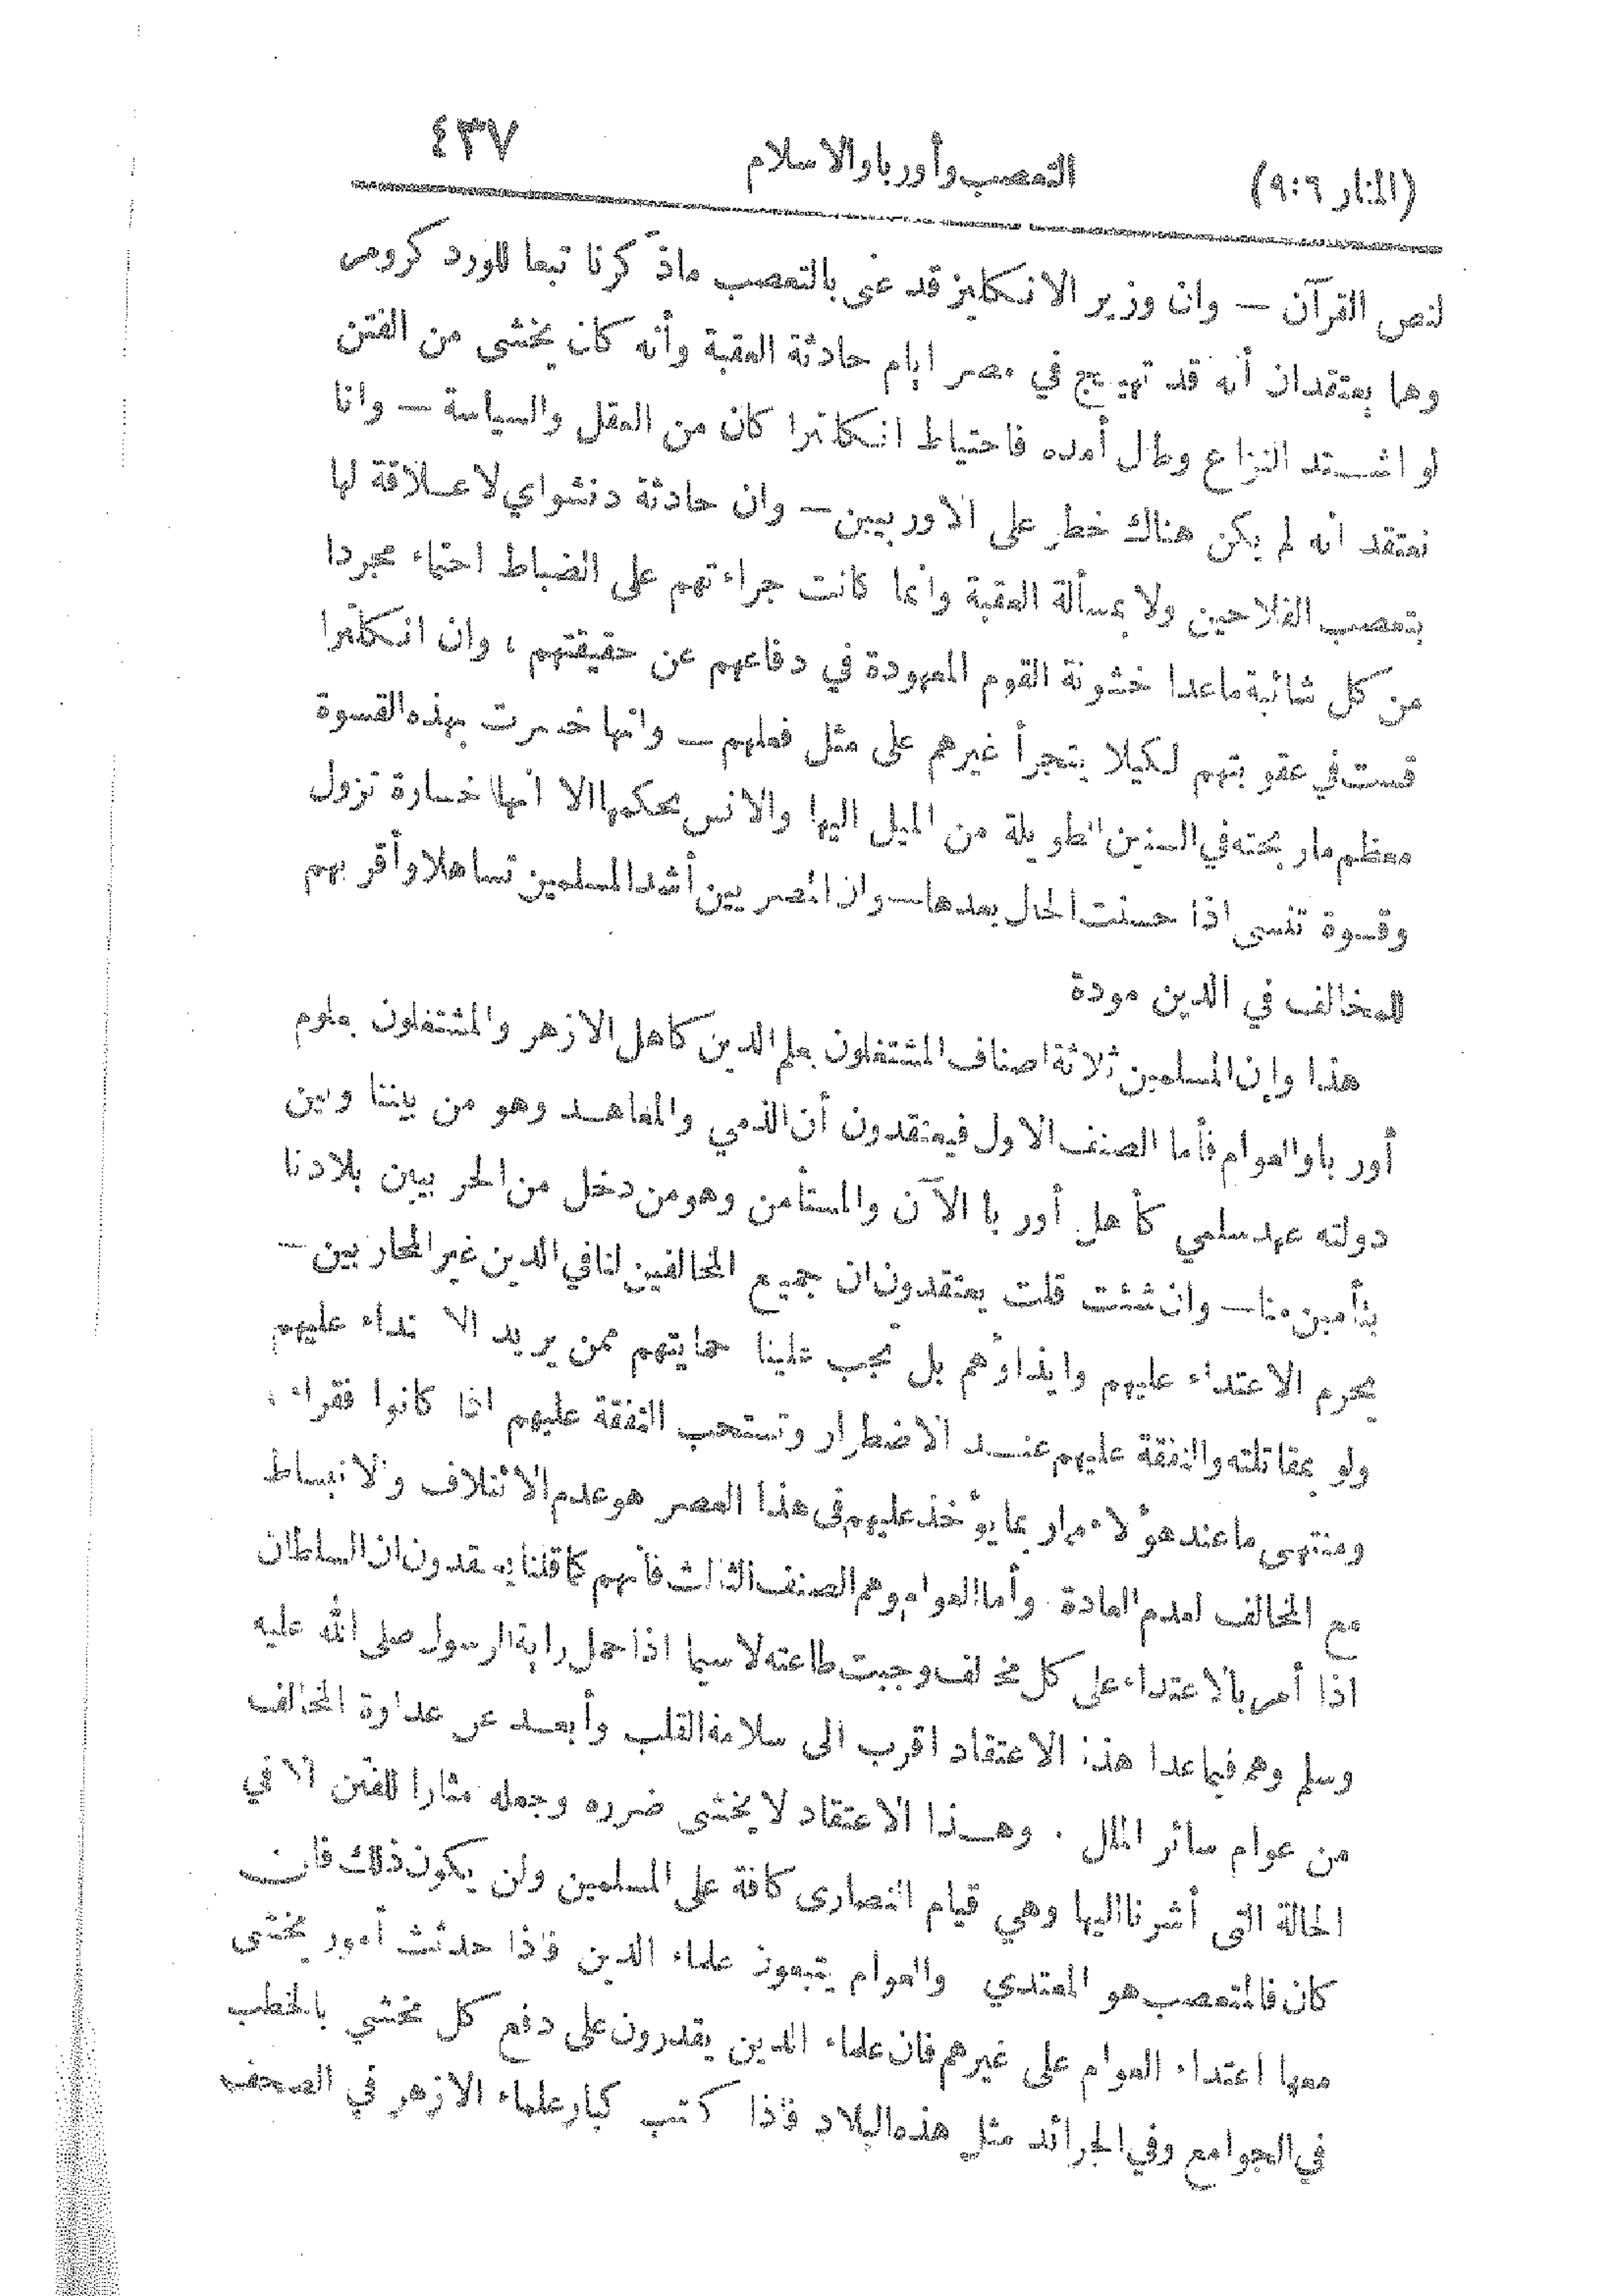 (المنار ٩:٦) التعصب وأوربا والاسلام ٤٣٧
لنص القرآن — وان وزير الانكليز قد عنى بالتعصب ماذكرنا تبعا للورد كرومر
وهما يعتقدان أنه قد تهيج في مصر ايام حادثة العقبة وأنه كان يخشى من الفتن
لو اشتد النزاع وطال أمده فاحتياط انكلترا كان من العقل والسياسة — وانا
نعتقد انه لم يكن هناك خطر على الاوربيين — وان حادثة دنشواي لا علاقة لها
بتعصب الفلاحين ولا بمسألة العقبة وانما كانت جراءتهم على الضباط احتماء مجردا
من كل شائبة ماعدا خشونة القوم المعهودة في دفاعهم عن حقيقتهم ، وان انكلترا
قست في عقوبتهم لكيلا يتجرأ غيرهم على مثل فعلهم — وانها خسرت بهذه القسوة
معظم ماربحته في السنين الطويلة من الميل اليها والانس بحكمها الا انها خسارة تزول
وقسوة تنسى اذا حسنت الحال بعدها — وان المصريين أشد المسلمين تساهلا وأقربهم
للمخالف في الدين مودة
هذا وإن المسلمين ثلاثة اصناف المشتغلون بعلم الدين كاهل الازهر والمشتغلون بعلوم
أوربا والعوام فأما الصنف الاول فيعتقدون أن الذمي والمعاهد وهو من بيننا وبين
دولته عهد سلمي كأهل أوربا الآن والمستأمن وهو من دخل من الحربيين بلادنا
بتأمين منا — وان شئت قلت يعتقدون ان جميع المخالفين لنا في الدين غير المحاربين —
يحرم الاعتداء عليهم وايذاؤهم بل تجب علينا حمايتهم ممن يريد الاعتداء عليهم
ولو بمقاتلته والنفقة عليهم عند الاضطرار وتستحب النفقة عليهم اذا كانوا فقراء ،
ومنتهى ما عند هؤلاء مما يؤخذ عليهم في هذا العصر هو عدم الائتلاف والانبساط
مع المخالف لعدم العادة . وأما العوام وهم الصنف الثالث فأنهم كما قلنا يعتقدون ان السلطان
اذا أمر بالاعتداء على كل مخالف وجبت طاعته لاسيما اذا حمل راية الرسول صلى الله عليه
وسلم وهم فيما عدا هذا الاعتقاد اقرب الى سلامة القلب وأبعد عن عداوة المخالف
من عوام سائر الملل . وهذا الاعتقاد لا يخشى ضرره وجعله مثارا للفتن الا في
الحالة التي أشرنا اليها وهي قيام النصارى كافة على المسلمين ولن يكون ذلك فان
كان فالمتعصب هو المعتدي والعوام يتبعون علماء الدين فاذا حدثت أمور يخشى
معها اعتداء العوام على غيرهم فان علماء الدين يقدرون على دفع كل مخشي بالخطب
في الجوامع وفي الجرائد مثل هذه البلاد فاذا كتب كبار علماء الازهر في الصحف